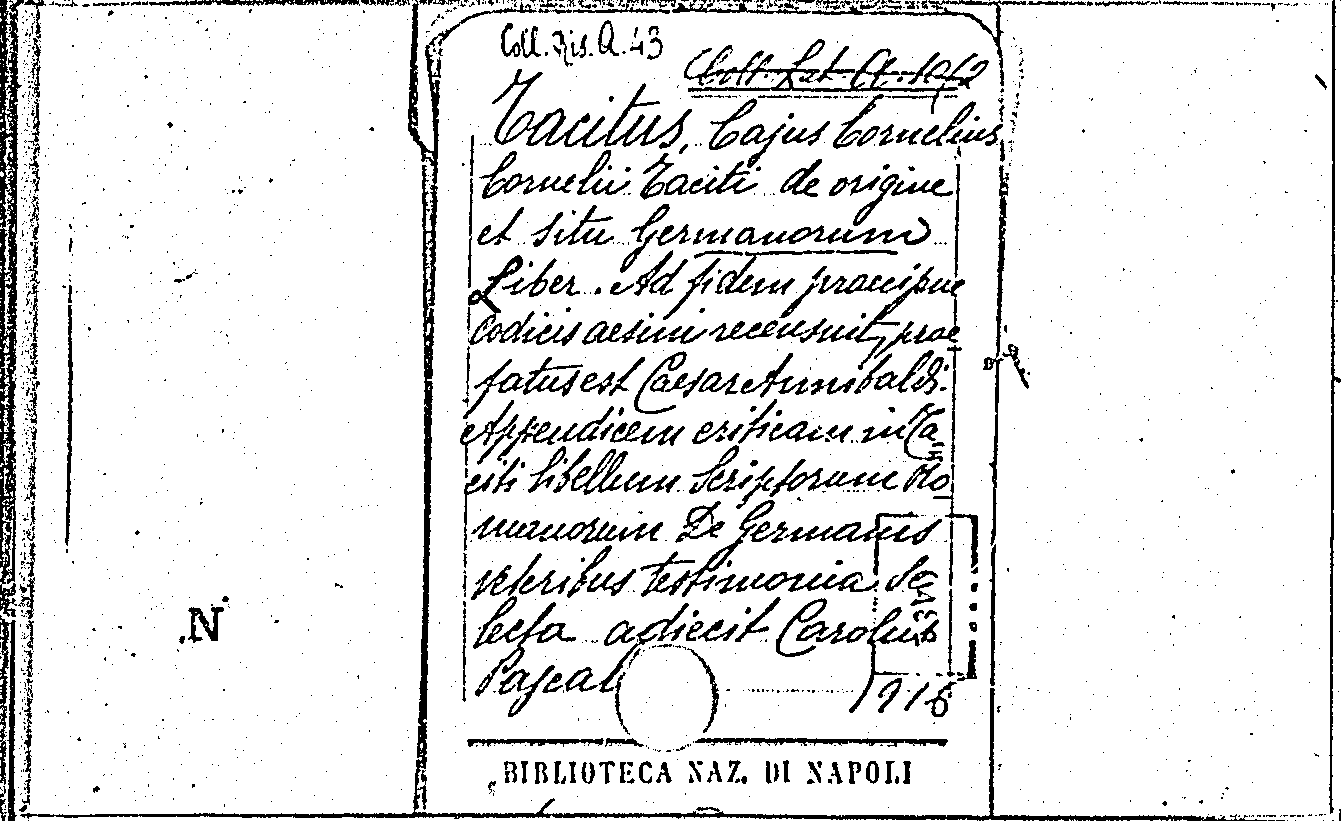 Coll. Ris. A. 43
Coll. Lat. A. 1012
Tacitus, Cajus Cornelius
Cornelii Taciti de origine
et situ Germanorum
Liber. Ad fidem praecipue
codicis aesini recensuit, prae
fatus est Caesar Annibaldi.
Appendicem criticam in Ta
citi libellum Scriptorum Ro
manorum De Germanis
veteribus testimonia se
lecta adiecit Carolus
Pascal
1916
BIBLIOTECA NAZ. DI NAPOLI
N